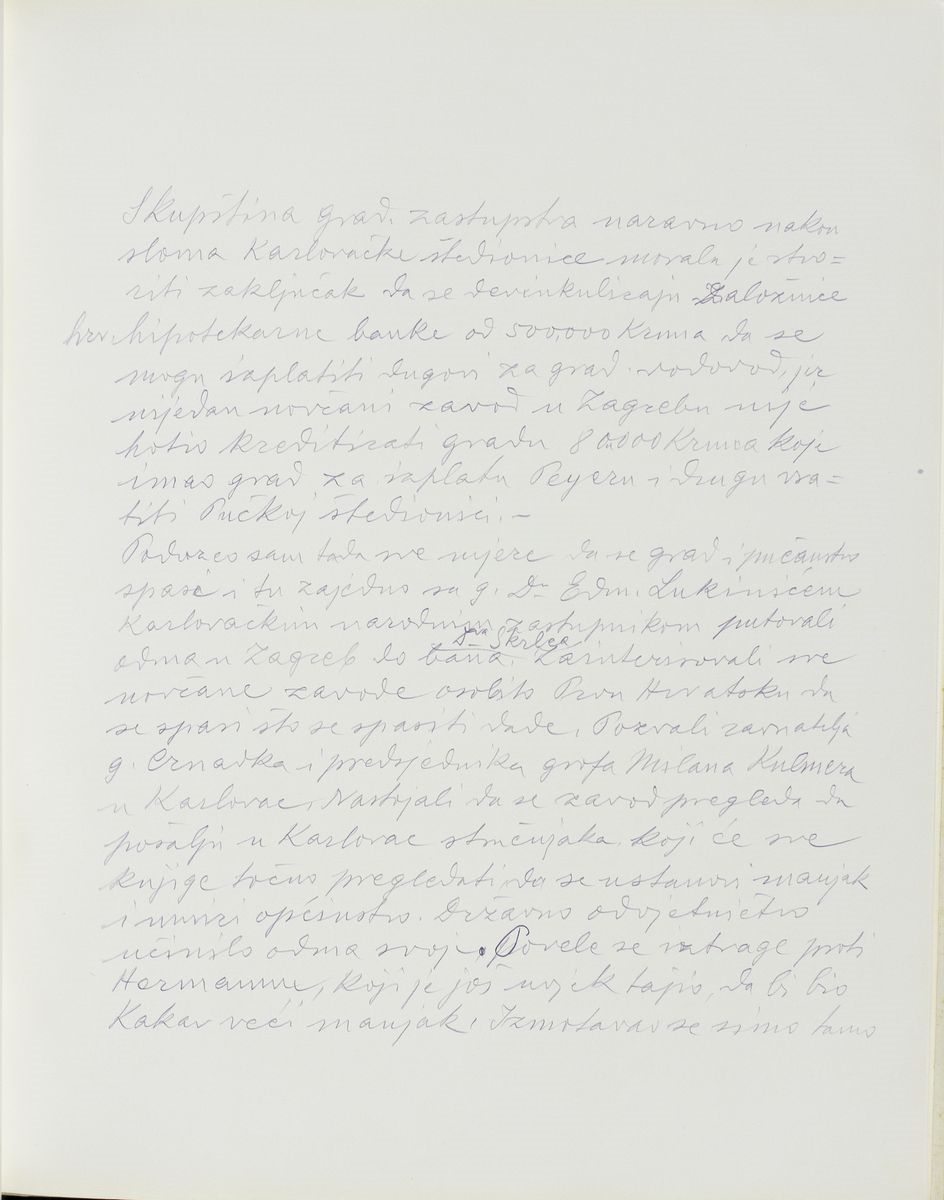 Skupština grad. zastupstva naravno nakon
sloma Karlovačke štedionice morala je stvo=
riti zaključak da se devinkuliraju Založnice
hrv. hipotekarne banke od 500,000 Kruna da se
mogu isplatiti dugovi za grad. vodovod, jer
nijedan novčani zavod u Zagrebu nije
hotio kreditirati gradu 80.000 Kruna koje
imao grad za isplatu Peyeru i drugu vra=
titi Pučkoj štedionici. –
Poduzeo sam tada sve mjere da se grad i pučanstvo
spase i tu zajedno sa g. Dr Edm. Lukinićem
Karlovačkim narodnim zastupnikom putovali
Dra Škrleca
odma u Zagreb do bana. Zainterisovali sve
novčane zavode osobito Prvu Hrvatsku da
se spasi što se spasiti dade. Pozvali ravnatelja
g. Crnadka i predsjednika grofa Milana Kulmera
u Karlovac. Nastojali da se zavod pregleda da
pošalju u Karlovac stručnjaka koji će sve
knjige točno pregledati, da se ustanovi manjak
i umiri općinstvo. Državno odvjetničtvo
učinilo odma svoje. Povele se iztrage proti
Hermannu, koji je još uvjek tajio, da bi bio
Kakav veći manjak. Izmotavao se simo tamo